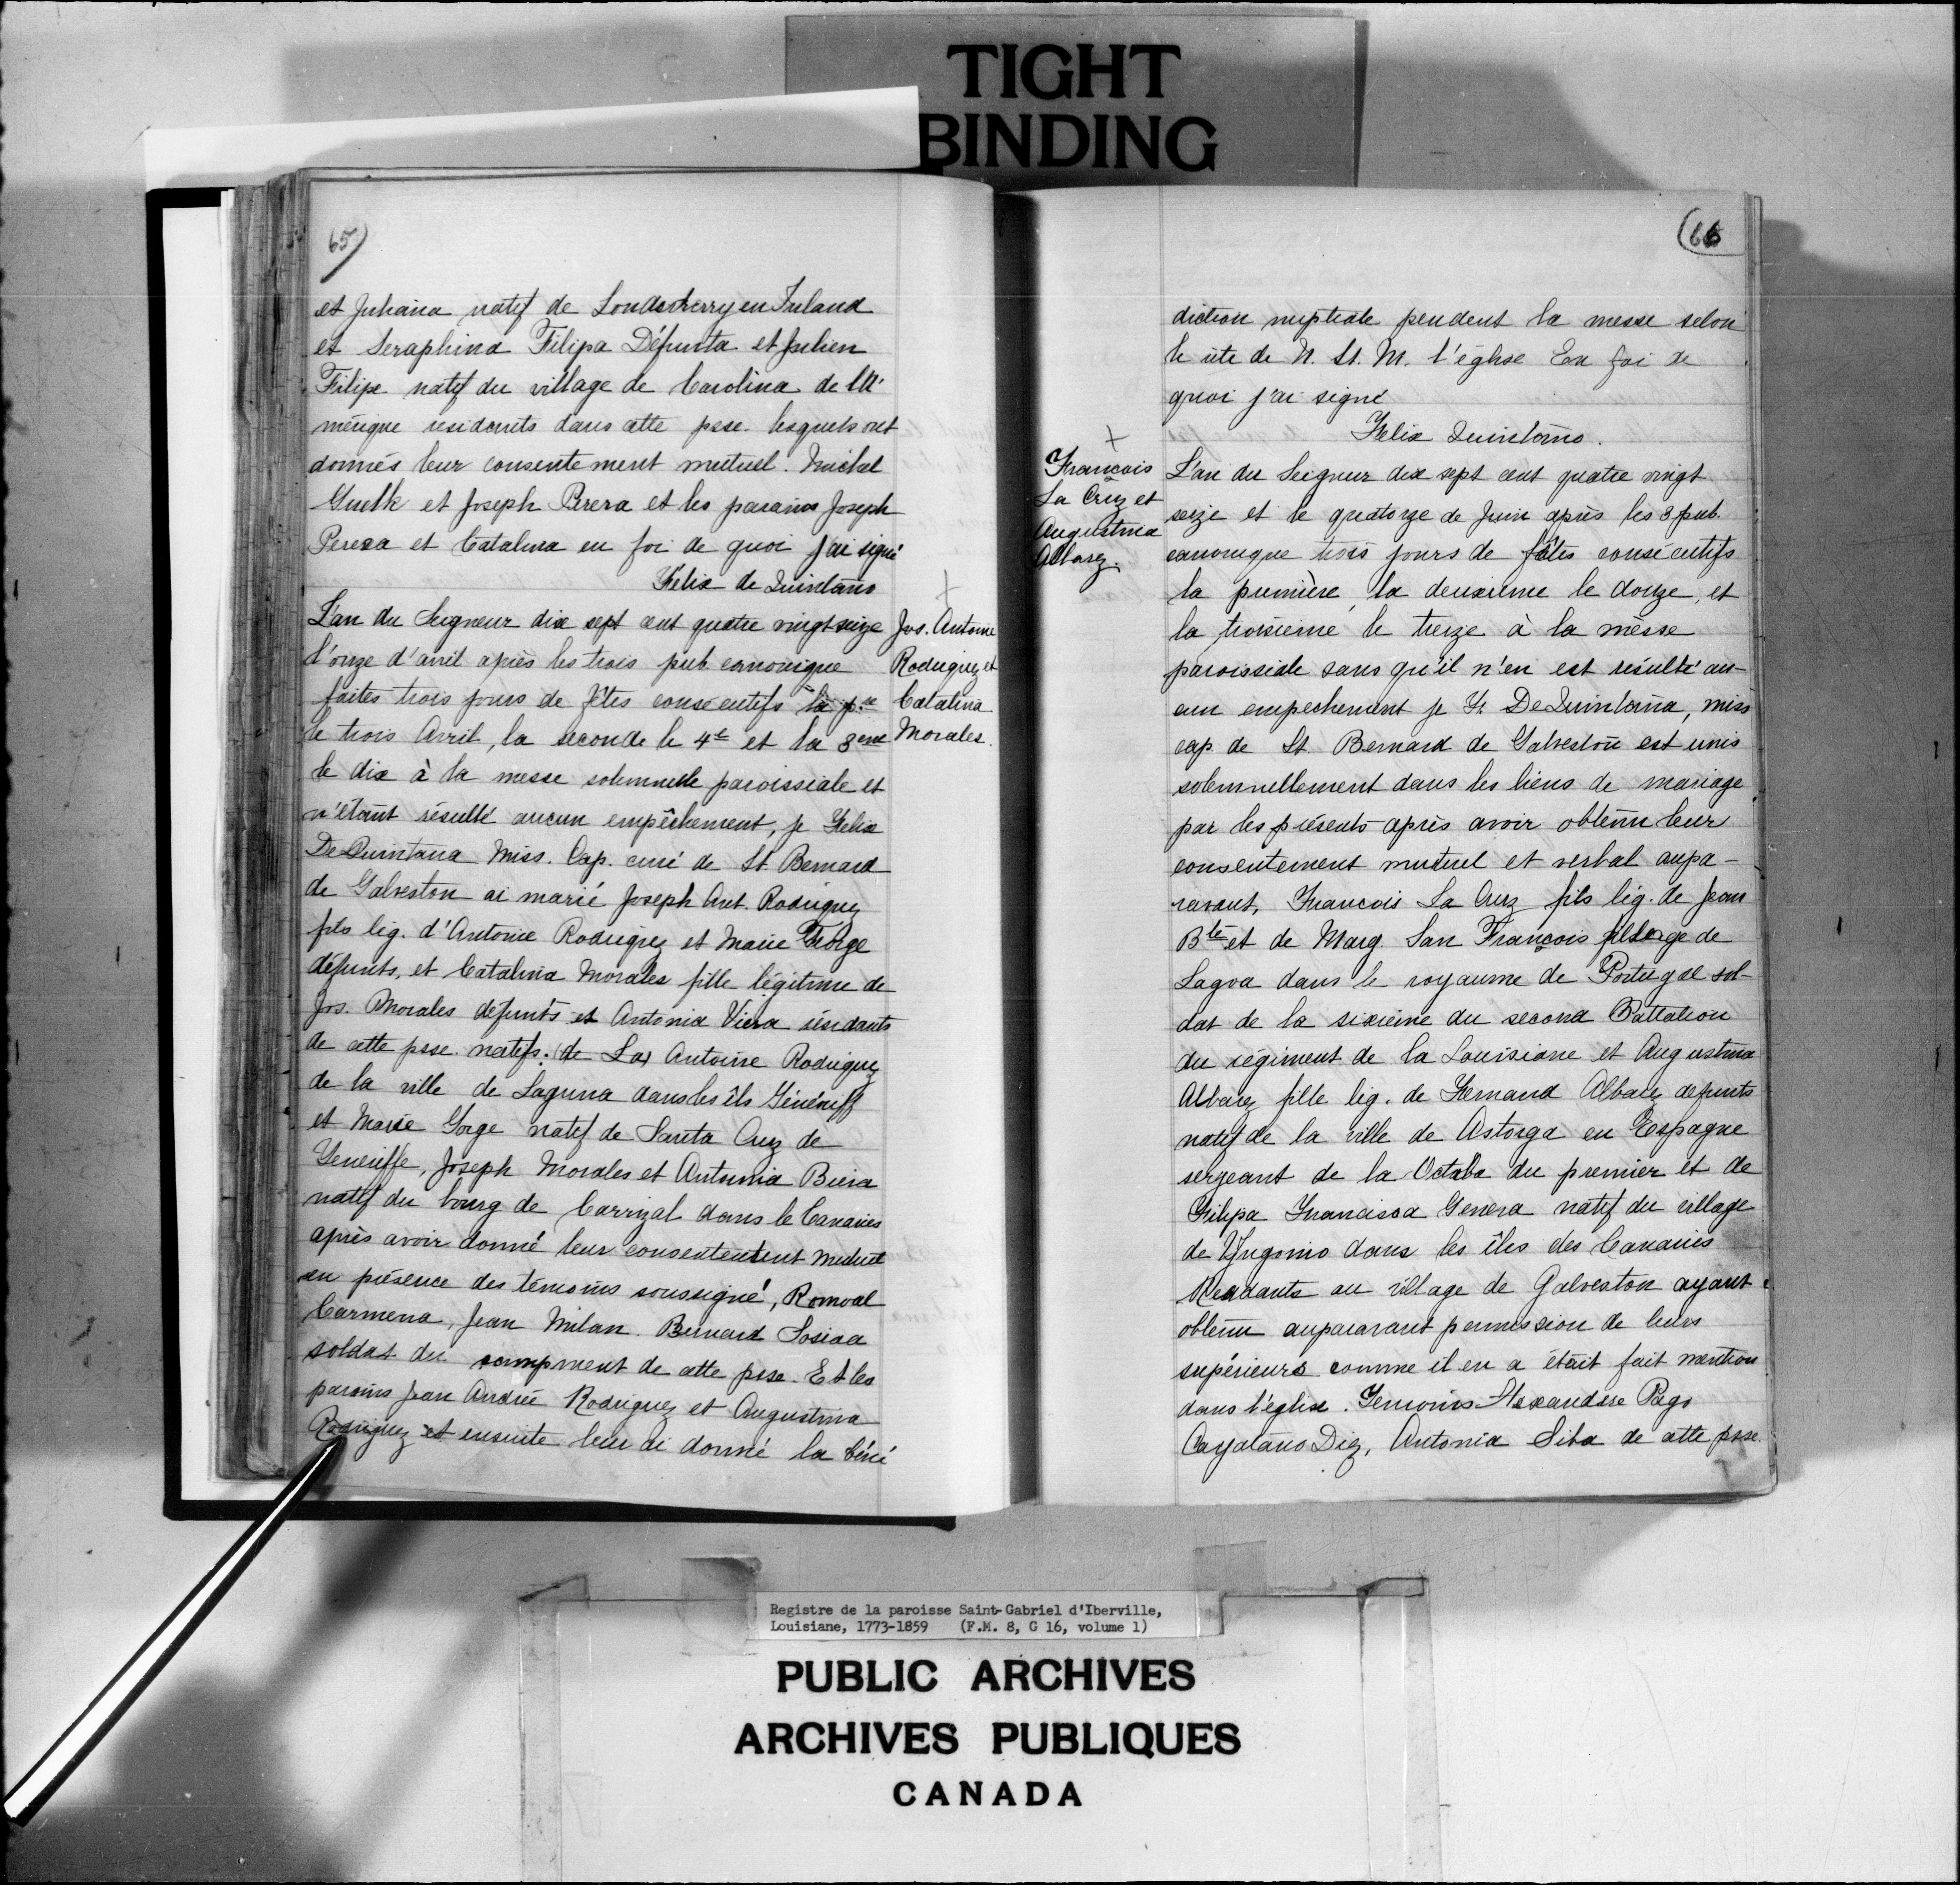 TIGHT
BINDING
65
et Juliana natif de Londsderry en Irland
et Seraphina Filipa Défunta et Julien
Filipe natif du village de Carolina de l'A
mérique residents dans cette psse. lesquels ont
donnés leur consentement mutuel. Michel
Guelk et Joseph Perera et les parains Joseph
Pereza et Catalina en foi de quoi j'ai signé
Félix de Quintano
L'an du Seigneur dix sept cent quatre vingt seize
l'onze d'avril après les trois pub canonique
faites trois jours de fêtes consécutifs la pre
le trois Avril, la seconde le 4e et la 3eme
le dix à la messe solemnelle paroissiale et
n'étant résulté aucun empêchement, je Felix
De Quintana Miss. Cap. curé de St. Bernard
de Galveston ai marié Joseph Ant. Rodriguez
fils lég. d'Antoine Rodrigrez et Marie George
défunts, et Catalina Morales fille légitime de
Jos. Morales défunts et Antonia Viera résidants
de cette psse. natifs. (de La) Antoine Rodriguez
de la ville de Laguna dans les îls Génériff
et Marie Gorge natif de Santa Cruz de
Teneriffe, Joseph Morales et Antonia Biera
natif du bourg de Carrizal dans le Canaries
après avoir donné leur consentement mutuel
en présence des témoins soussigné, Romoal
Carmena, Jean Milan. Bernard Sosiaa
soldat du campment de cette psse. Et les
parains Jean André Rodriguez et Augustina
Rodriguez et ensuite leur ai donné la béné
+
Jos. Antoine
Rodriguez et
Catalina
Morales.
(66
diction nuptiale pendent la messe selon
le rite de N. St. M. l'église En foi de
quoi j'ai signé
Felix Quintano.
+
François
La Cruz et
Augustina
Albarez.
L'an du Seigneur dix sept cent quatre vingt
seize et le quatorze de Juin après les 3 pub.
canonique trois jours de fêtes consécutifs
la première, la deuxième le douze, et
la troisième le treize à la messe
paroissiale sans qu'il n'en est résulté au-
cun empechement je Fr. De Quintana, miss
cap. de St Bernard de Galveston est unis
solemnellement dans les liens de mariage
par les présents après avoir obtenu leur
consentement mutuel et verbal aupa-
ravant, Francois La Cruz fils lég. de Jean
Bte et de Marg San François village de
Lagoa dans le royaume de Portugal sol-
dat de la sixième du second Battalion
du régiment de la Louisiane et Augustina
Albarez fille lég. de Fernand Albarez defunts
natif de la ville de Astorga en Espagne
sergeant de la Octaba du premier et de
Filipa Francisca Genera natif du village
de Yngonio dans les îles des Canaries
Residants au village de Galveston ayant
obtenu auparavant permission de leurs
supérieurs comme il en a était fait mention
dans l'église. Temoins Alexandre Pago
Cayatano Diez, Antonia Siba de cette psse.
Registre de la paroisse Saint-Gabriel d'Iberville,
Louisiane, 1773-1859 (F.M. 8, G 16, volume 1)
PUBLIC ARCHIVES
ARCHIVES PUBLIQUES
CANADA